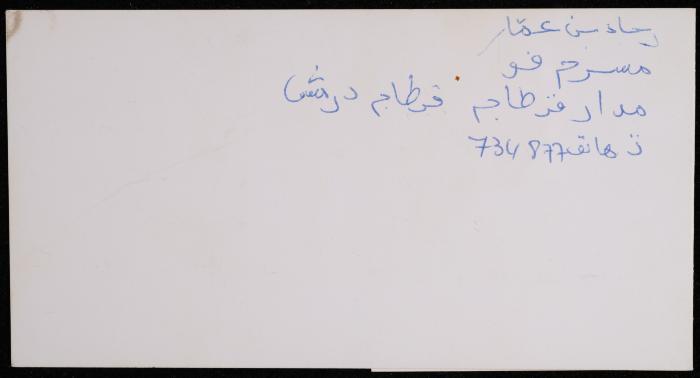 رجاء بن عمّار
مسرح فو
مدار قرطاج قرطاج درمش
هاتف 734 877